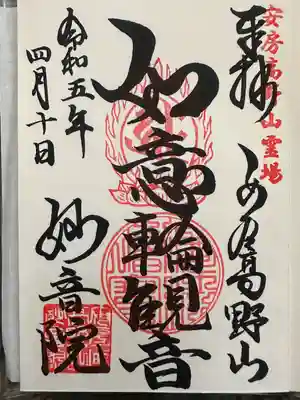 安房高野山霊場
奉拝
あわ高野山
如意輪観音
令和五年
四月十日
妙音院